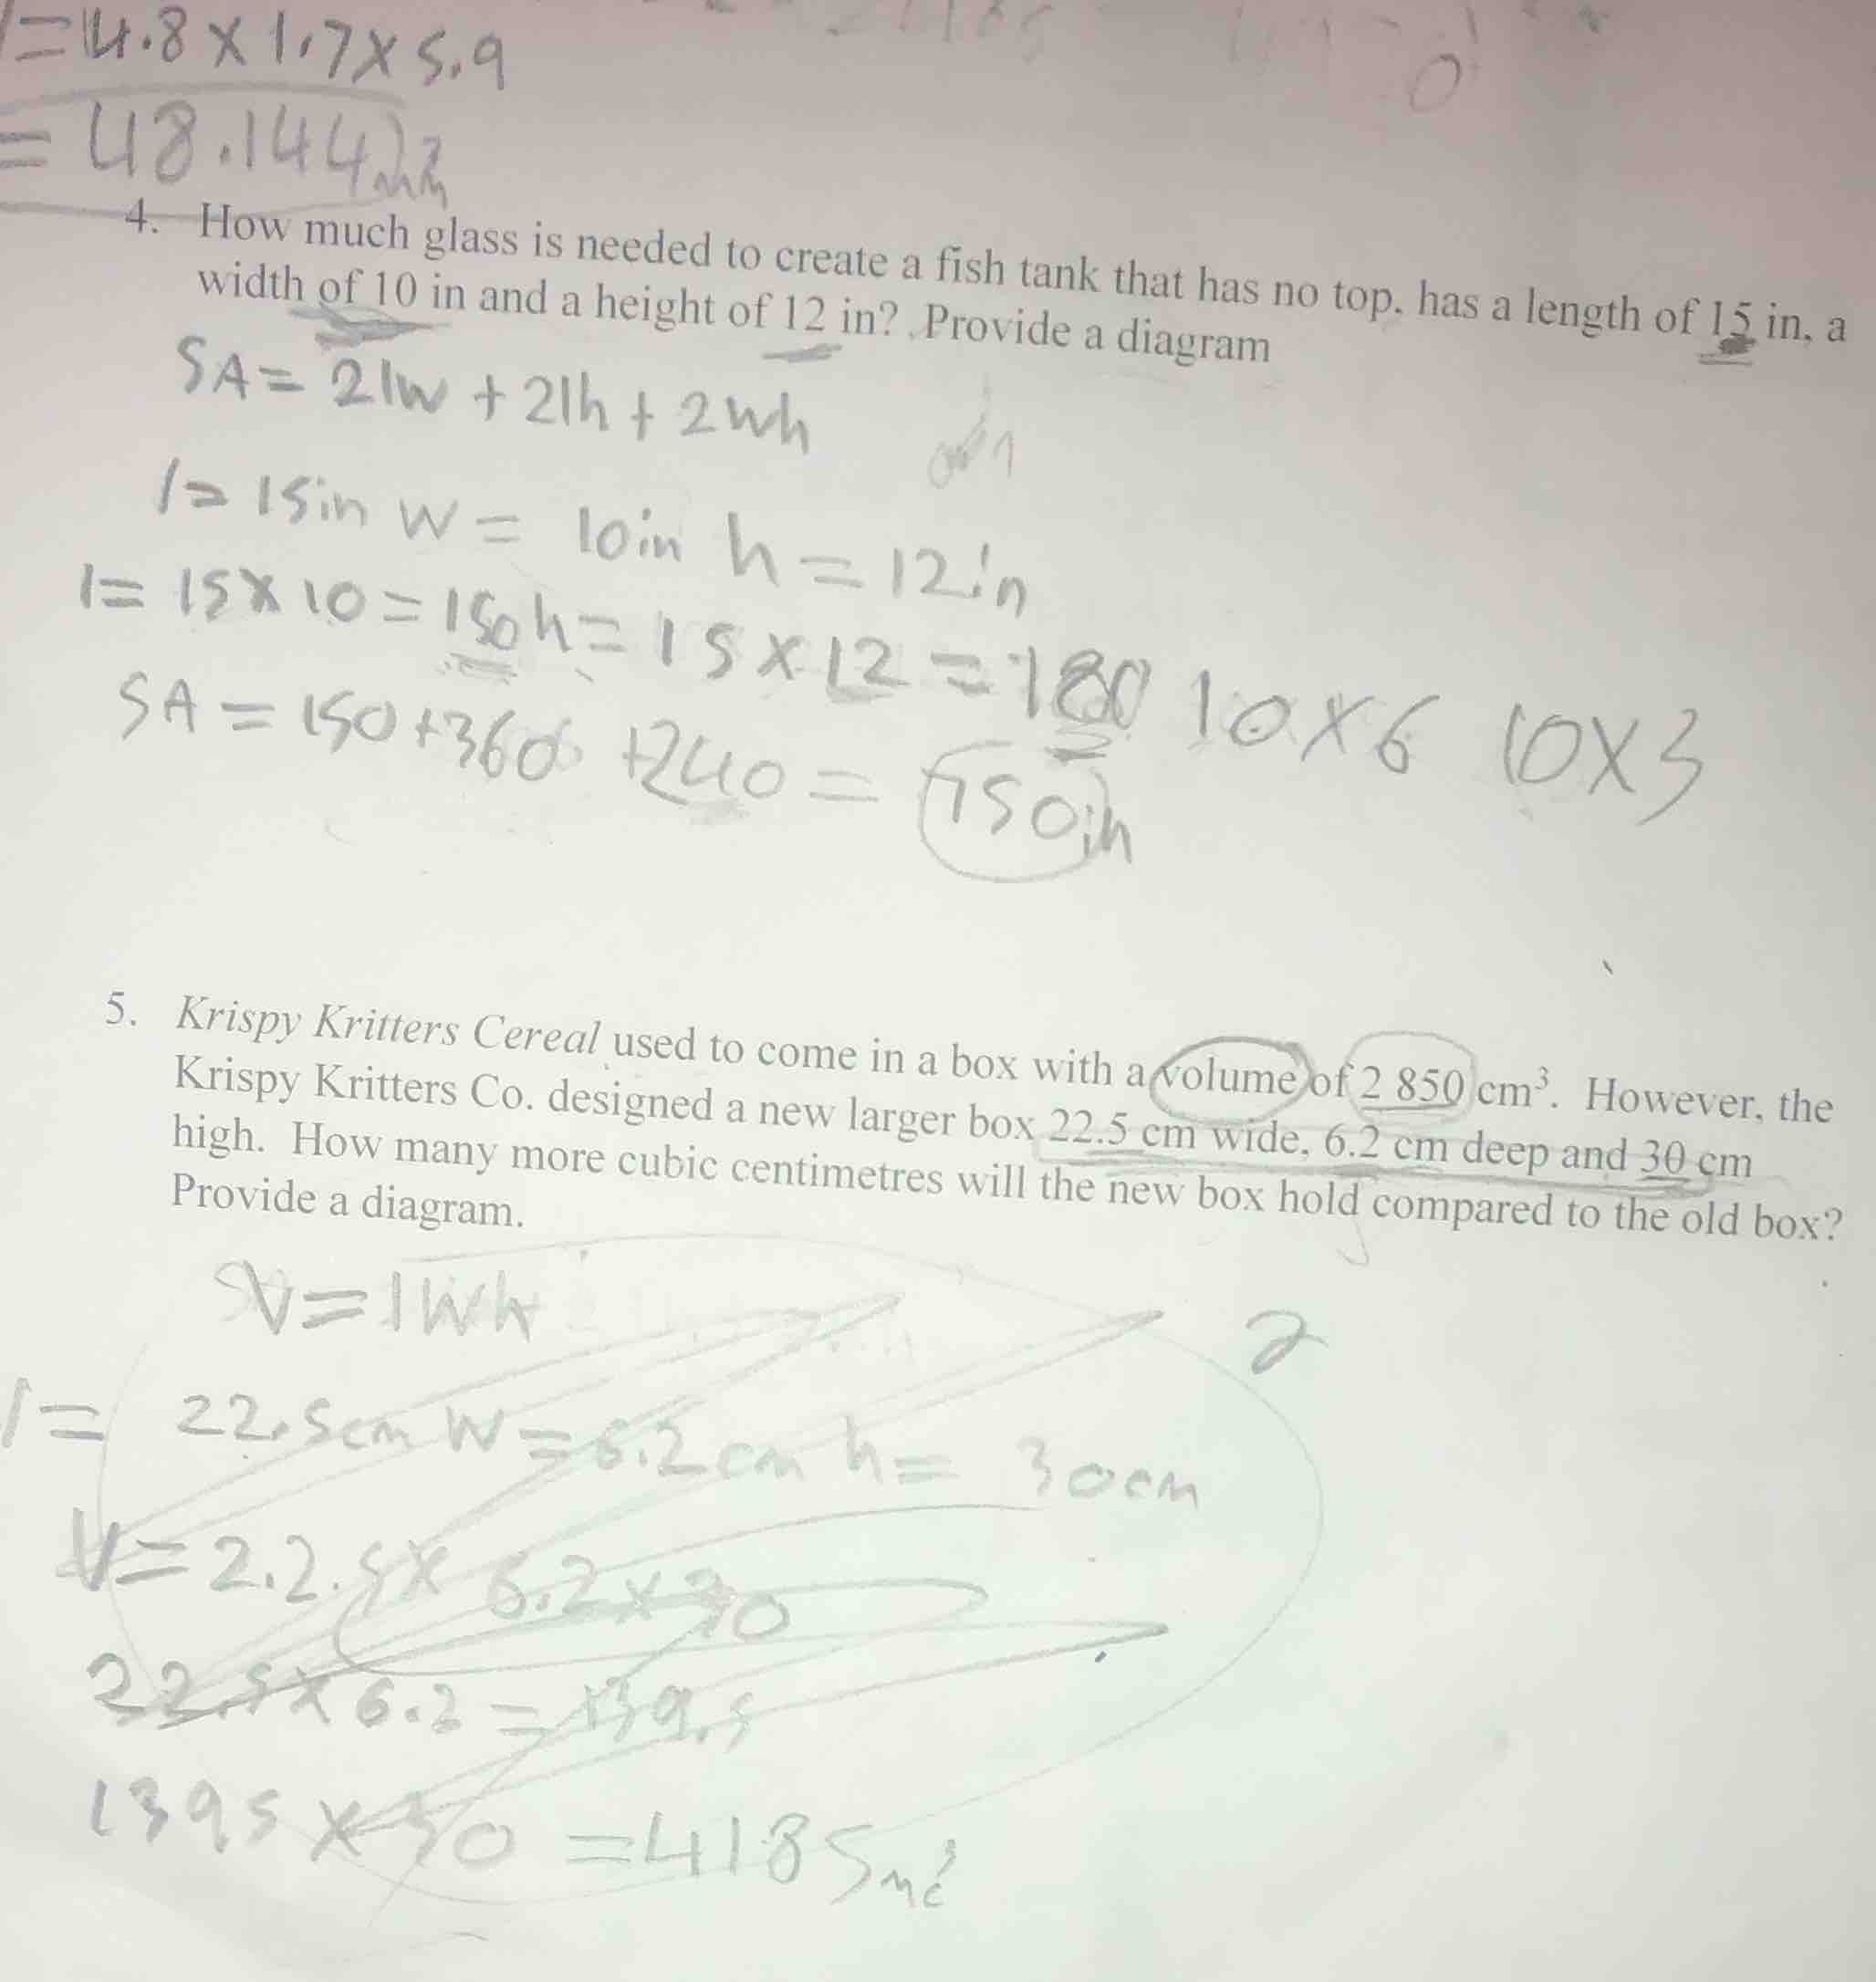 l=4.8 x 1.7 x 5.9
= 48.144
4. How much glass is needed to create a fish tank that has no top, has a length of 15 in, a
width of 10 in and a height of 12 in? Provide a diagram
SA = 2lw + 2lh + 2wh
l= 15in w = 10in h = 12in
l= 15x10=150 h= 15x12 = 180 10x6 10x3
SA = 150+360 +240 = 750in
5. Krispy Kritters Cereal used to come in a box with a volume of 2 850 cm³. However, the
Krispy Kritters Co. designed a new larger box 22.5 cm wide, 6.2 cm deep and 30 cm
high. How many more cubic centimetres will the new box hold compared to the old box?
Provide a diagram.
V=lwh
2
l= 22.5cm w=6.2cm h= 30cm
V=2.2.5x 6.2x30
22.5x6.2=139.5
1395 x30 =4185